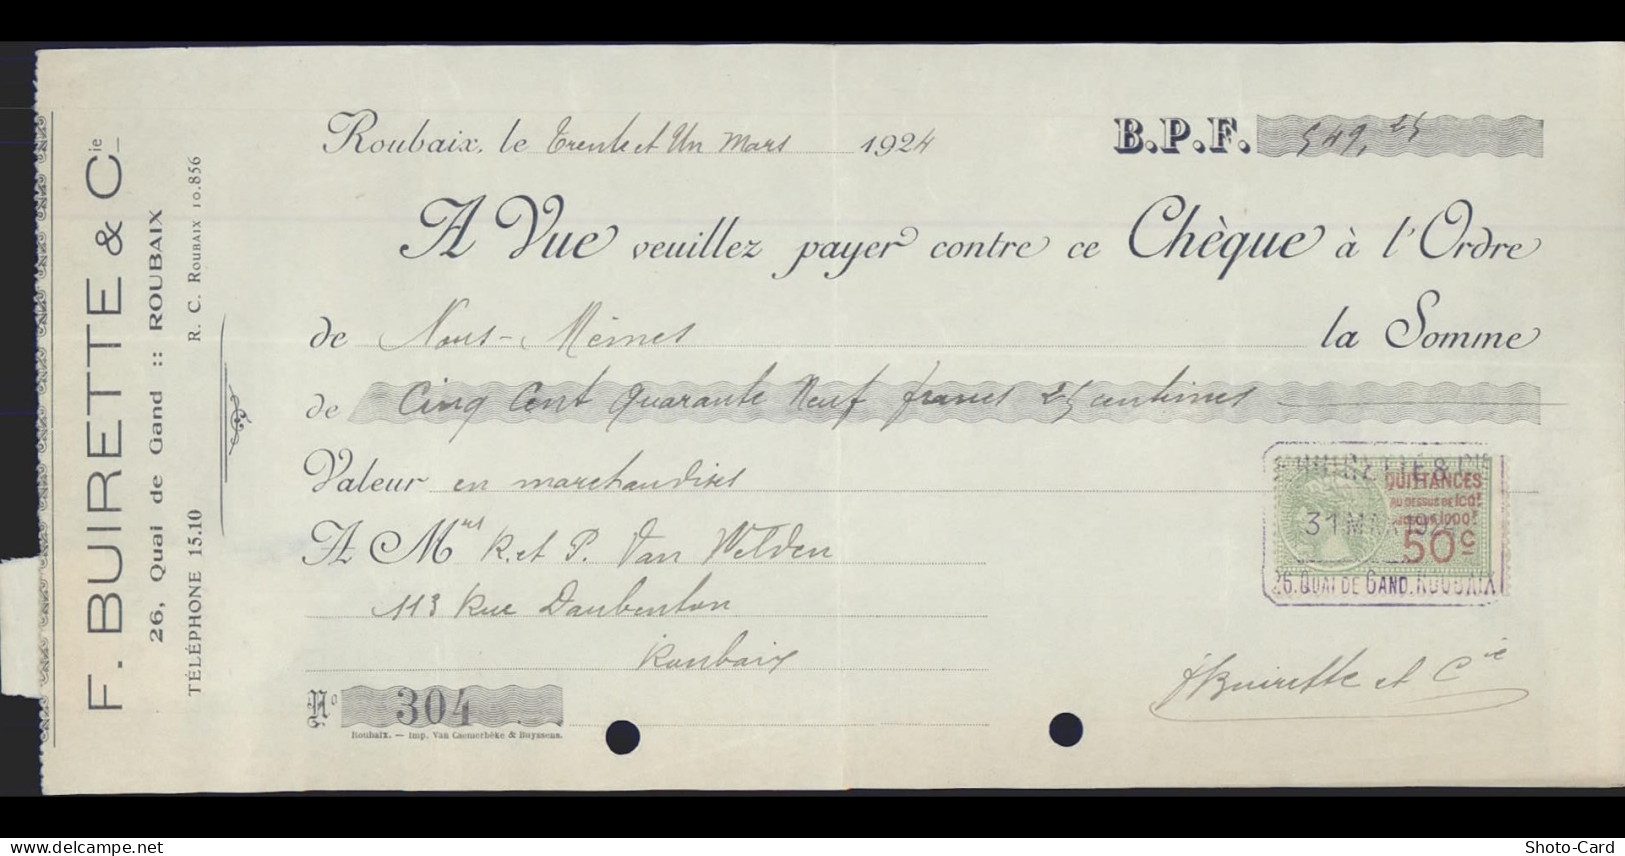 F. BUIRETTE & Cie
26, Quai de Gand :: ROUBAIX
TÉLÉPHONE 15.10 R. C. ROUBAIX 10.856
Roubaix, le Trente et Un Mars 1924
B.P.F. 549,25
A Vue veuillez payer contre ce Chèque à l'Ordre
de Nous-Mêmes la Somme
de Cinq Cent Quarante Neuf francs 25 centimes
Valeur en marchandises
QUITTANCES
AU DESSUS DE 100f
1000f
31 MAR 192
50c
26. QUAI DE GAND. ROUBAIX
A Mrs R. et P. Van Welden
113 Rue Daubenton
Roubaix
FBuirette et Cie
No 304
Roubaix. — Imp. Van Caemerbèke & Buyssens.
www.delcampe.net
Shoto-Card